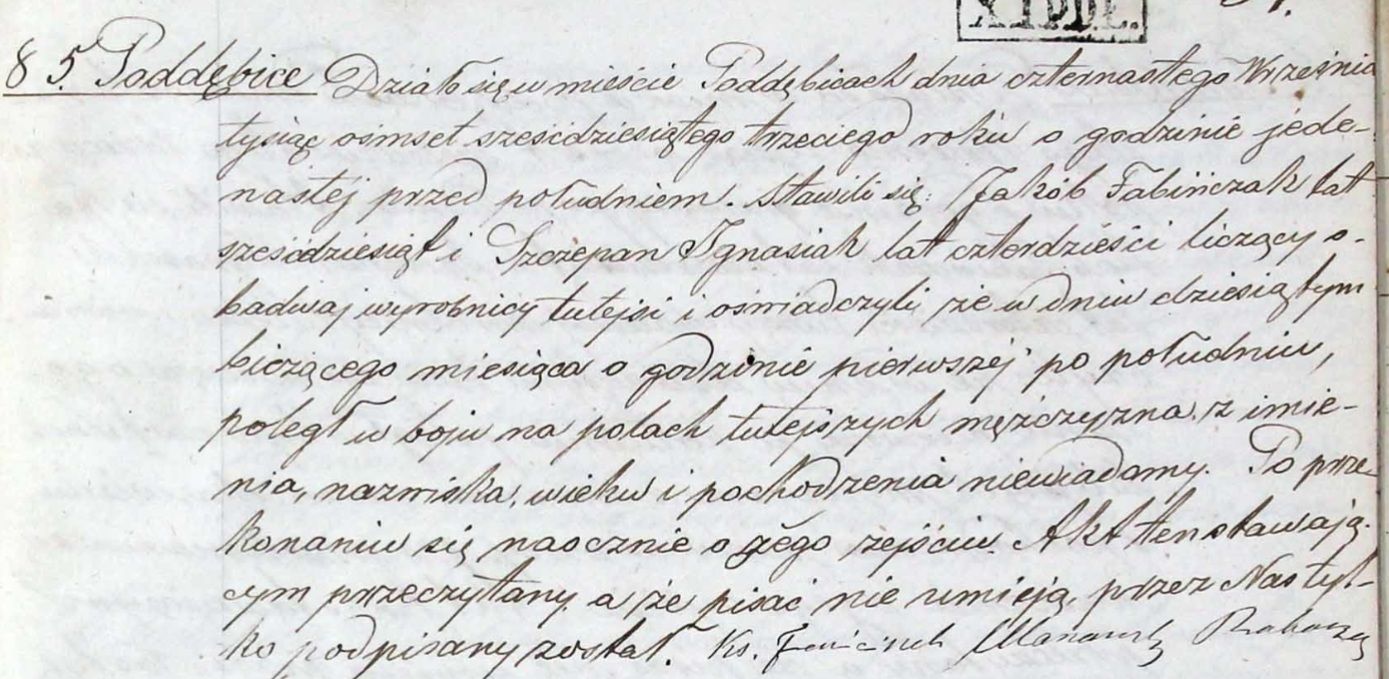 X IPDŁ.
85. Poddębice Działo się w mieście Poddębicach dnia czternastego Września
tysiąc ośmset sześćdziesiątego trzeciego roku o godzinie jede-
nastej przed południem. Stawili się: Jakób Fabińczak lat
sześćdziesiąt i Szczepan Ignasiak lat czterdzieści liczący o-
badwaj wyrobnicy tutejsi i oświadczyli że w dniu dziesiątym
bieżącego miesiąca o godzinie pierwszej po południu,
poległ w boju na polach tutejszych mężczyzna z imie-
nia, nazwiska, wieku i pochodzenia niewiadomy. Po prze-
konaniu się naocznie o jego zejściu. Akt ten stawają-
cym przeczytany a że pisać nie umieją, przez Nas tyl-
ko podpisany został. Ks. Franciszek